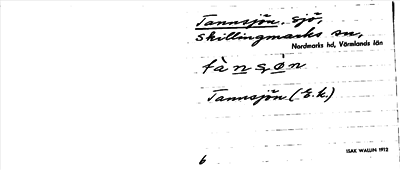 Tannsjön, sjö,
Skillingmarks sn,
Nordmarks hd, Värmlands län
tànsøn
Tannsjön (E.k.)
6
ISAK WALLIN 1972